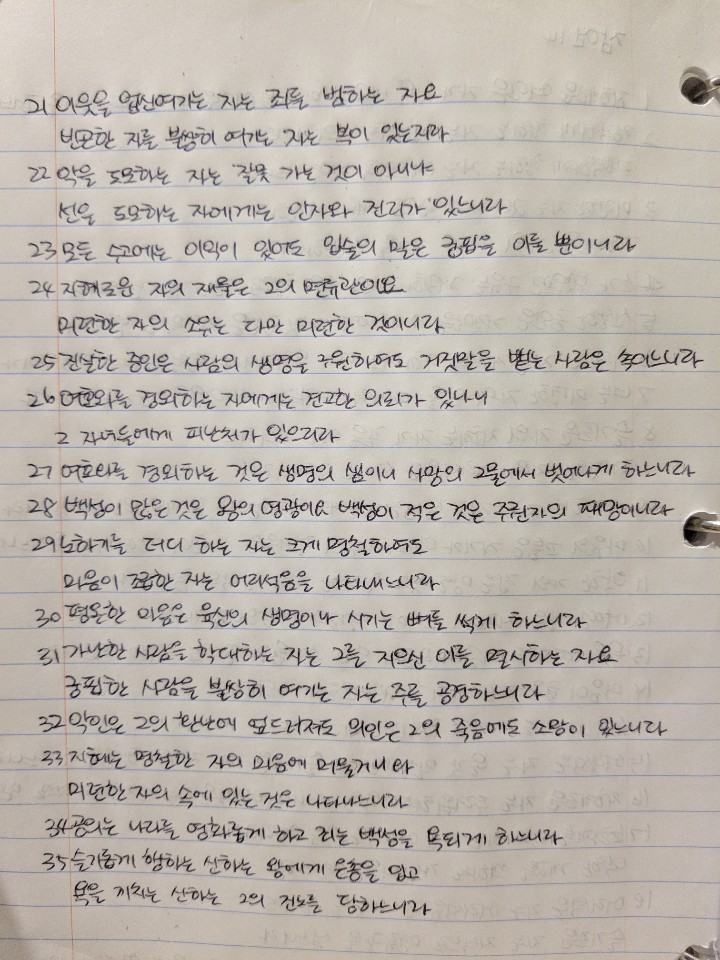 21 이웃을 업신여기는 자는 죄를 범하는 자요
빈곤한 자를 불쌍히 여기는 자는 복이 있는자라
22 악을 도모하는 자는 잘못 가는 것이 아니냐
선을 도모하는 자에게는 인자와 진리가 있느니라
23 모든 수고에는 이익이 있어도 입술의 말은 궁핍을 이룰 뿐이니라
24 지혜로운 자의 재물은 그의 면류관이요
미련한 자의 소유는 다만 미련한 것이니라
25 진실한 증인은 사람의 생명을 구원하여도 거짓말을 뱉는 사람은 속이느니라
26 여호와를 경외하는 자에게는 견고한 의뢰가 있나니
그 자녀들에게 피난처가 있으리라
27 여호와를 경외하는 것은 생명의 샘이니 사망의 그물에서 벗어나게 하느니라
28 백성이 많은 것은 왕의 영광이요 백성이 적은 것은 주권자의 패망이니라
29 노하기를 더디 하는 자는 크게 명철하여도
마음이 조급한 자는 어리석음을 나타내느니라
30 평온한 마음은 육신의 생명이나 시기는 뼈를 썩게 하느니라
31 가난한 사람을 학대하는 자는 그를 지으신 이를 멸시하는 자요
궁핍한 사람을 불쌍히 여기는 자는 주를 공경하느니라
32 악인은 그의 환난에 엎드러져도 의인은 그의 죽음에도 소망이 있느니라
33 지혜는 명철한 자의 마음에 머물거니와
미련한 자의 속에 있는 것은 나타나느니라
34 공의는 나라를 영화롭게 하고 죄는 백성을 욕되게 하느니라
35 슬기롭게 행하는 신하는 왕에게 은총을 입고
욕을 끼치는 신하는 그의 진노를 당하느니라